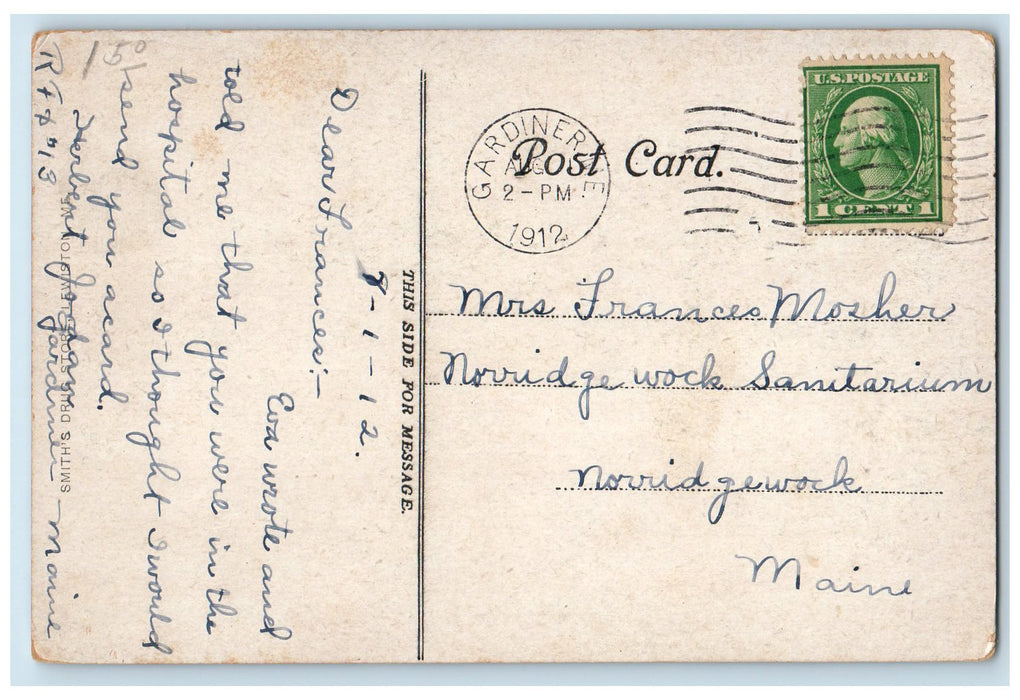 U.S. POSTAGE
1 CENT 1
GARDINER
AUG
2-PM
1912
Post Card.
THIS SIDE FOR MESSAGE.
Mrs Frances Mosher
Norridgewock Sanitarium
Norridgewock
Maine
8-1-12.
Dear Frances:-
Eva wrote and
told me that you were in the
hospital so I thought I would
send you a card.
Jordan
Gardiner Maine
SMITH'S DRUG STORE, LEWISTON, ME.
150